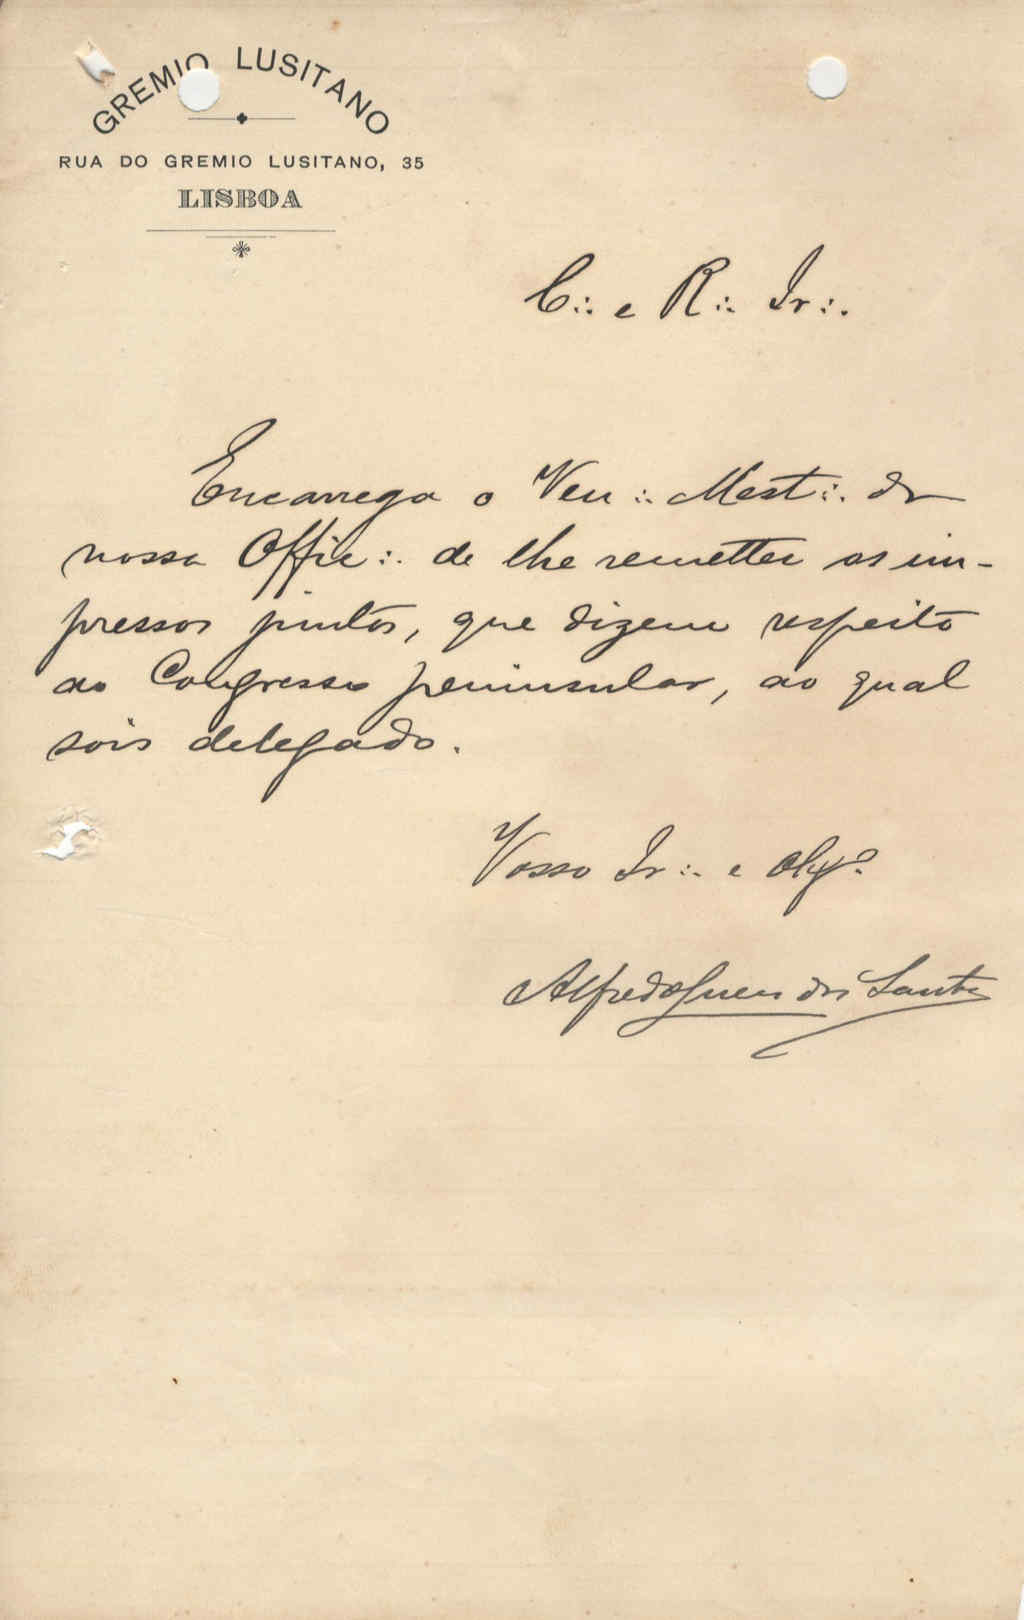 GREMIO LUSITANO
RUA DO GREMIO LUSITANO, 35
LISBOA
C∴ e R∴ Ir∴
Encarrega o Ven∴ Mest∴ da
nossa Offic∴ de lhe remetter os im-
pressos juntos, que dizem respeito
ao Congresso peninsular, ao qual
sois delegado.
Vosso Ir∴ e
Alfredo dos Santos